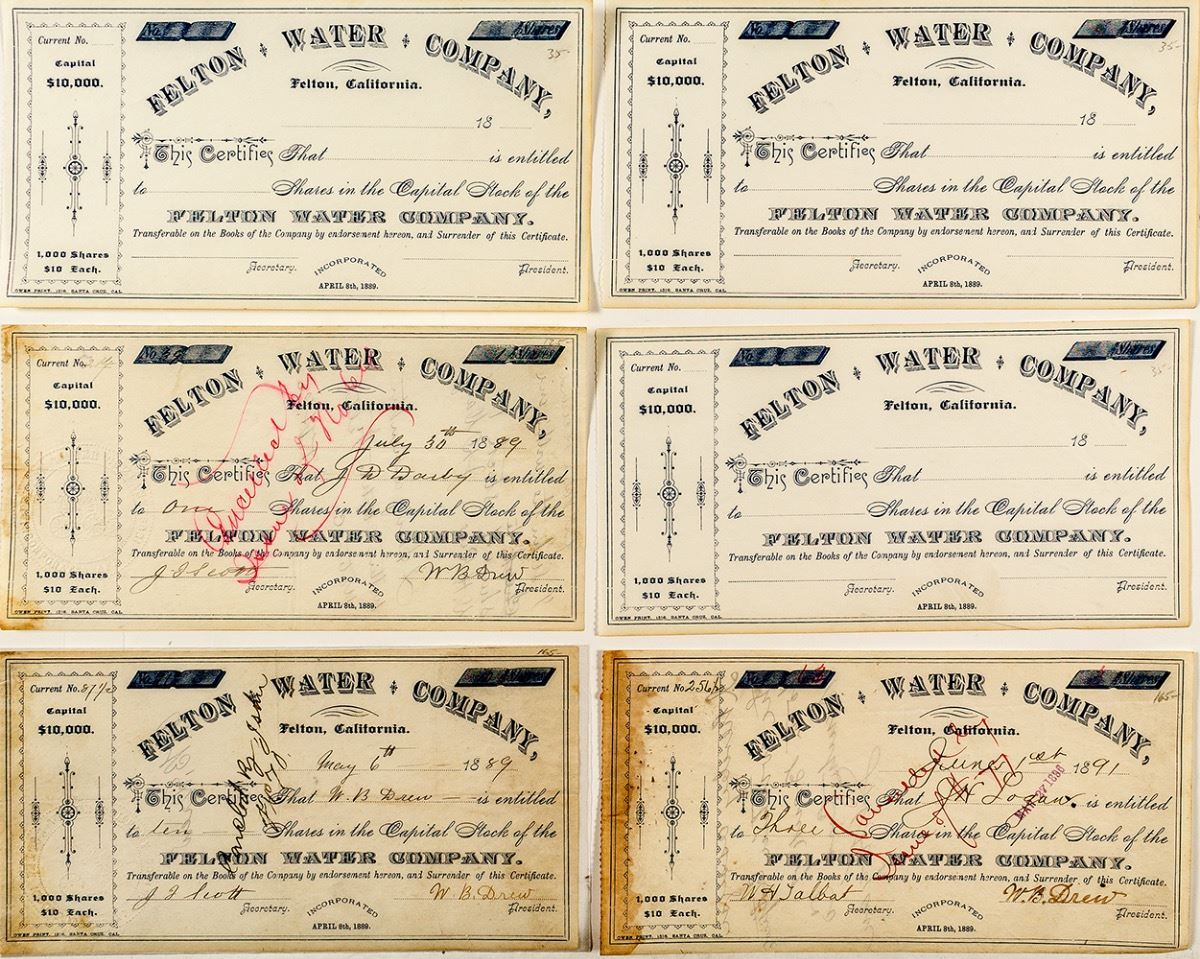 Current No.
Capital
$10,000.
1,000 Shares
$10 Each.
No.
Shares
35-
FELTON WATER COMPANY,
Felton, California.
18
This Certifies That is entitled
to Shares in the Capital Stock of the
FELTON WATER COMPANY.
Transferable on the Books of the Company by endorsement hereon, and Surrender of this Certificate.
Secretary. INCORPORATED President.
APRIL 8th, 1889.
OWEN PRINT, 1216, SANTA CRUZ, CAL.
Current No.
Capital
$10,000.
1,000 Shares
$10 Each.
No.
Shares
35-
FELTON WATER COMPANY,
Felton, California.
18
This Certifies That is entitled
to Shares in the Capital Stock of the
FELTON WATER COMPANY.
Transferable on the Books of the Company by endorsement hereon, and Surrender of this Certificate.
Secretary. INCORPORATED President.
APRIL 8th, 1889.
OWEN PRINT, 1216, SANTA CRUZ, CAL.
Current No.
Capital
$10,000.
1,000 Shares
$10 Each.
No.
Shares
FELTON WATER COMPANY,
Felton, California.
July 30th 1889
This Certifies That J D Darby is entitled
to One Shares in the Capital Stock of the
FELTON WATER COMPANY.
Transferable on the Books of the Company by endorsement hereon, and Surrender of this Certificate.
J J Scott W B Drew
Secretary. INCORPORATED President.
APRIL 8th, 1889.
OWEN PRINT, 1216, SANTA CRUZ, CAL.
Cancelled by
Current No.
Capital
$10,000.
1,000 Shares
$10 Each.
No.
Shares
35-
FELTON WATER COMPANY,
Felton, California.
18
This Certifies That is entitled
to Shares in the Capital Stock of the
FELTON WATER COMPANY.
Transferable on the Books of the Company by endorsement hereon, and Surrender of this Certificate.
Secretary. INCORPORATED President.
APRIL 8th, 1889.
OWEN PRINT, 1216, SANTA CRUZ, CAL.
165-
Current No.
Capital
$10,000.
1,000 Shares
$10 Each.
No.
Shares
FELTON WATER COMPANY,
Felton, California.
May 6th 1889
This Certifies That W. B Drew is entitled
to ten Shares in the Capital Stock of the
FELTON WATER COMPANY.
Transferable on the Books of the Company by endorsement hereon, and Surrender of this Certificate.
J J Scott W. B. Drew
Secretary. INCORPORATED President.
APRIL 8th, 1889.
OWEN PRINT, 1216, SANTA CRUZ, CAL.
Current No.
Capital
$10,000.
1,000 Shares
$10 Each.
No.
Shares
165-
FELTON WATER COMPANY,
Felton, California.
June 1st 1891
This Certifies That J W Logan. is entitled
to Three Shares in the Capital Stock of the
FELTON WATER COMPANY.
Transferable on the Books of the Company by endorsement hereon, and Surrender of this Certificate.
W H Talbat W. B. Drew
Secretary. INCORPORATED President.
APRIL 8th, 1889.
OWEN PRINT, 1216, SANTA CRUZ, CAL.